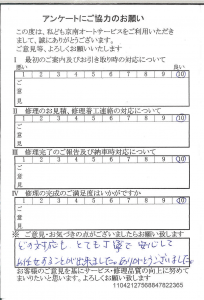 アンケートにご協力のお願い
この度は、私ども京南オートサービスをご利用いただきまして、誠にありがとうございます。
ご意見等、よろしくお願いいたします
Ⅰ 最初のご案内及びお引き取り時の対応について
悪い 良い
1 2 3 4 5 6 7 8 9 10
ご意見
Ⅱ 修理のお見積、修理着工連絡の対応について
1 2 3 4 5 6 7 8 9 10
ご意見
Ⅲ 修理完了のご報告及び納車時対応について
1 2 3 4 5 6 7 8 9 10
ご意見
Ⅳ 修理の完成のご満足度はいかがですか
1 2 3 4 5 6 7 8 9 10
ご意見
※ ご意見・お気づきの点がございましたらお願い致します
とても丁寧で安心して
お任せすることが出来ました。ありがとうございました。
お客様のご意見を基にサービス・修理品質の向上に努めてまいりたいと思います。よろしくお願い致します
11042127568847822365